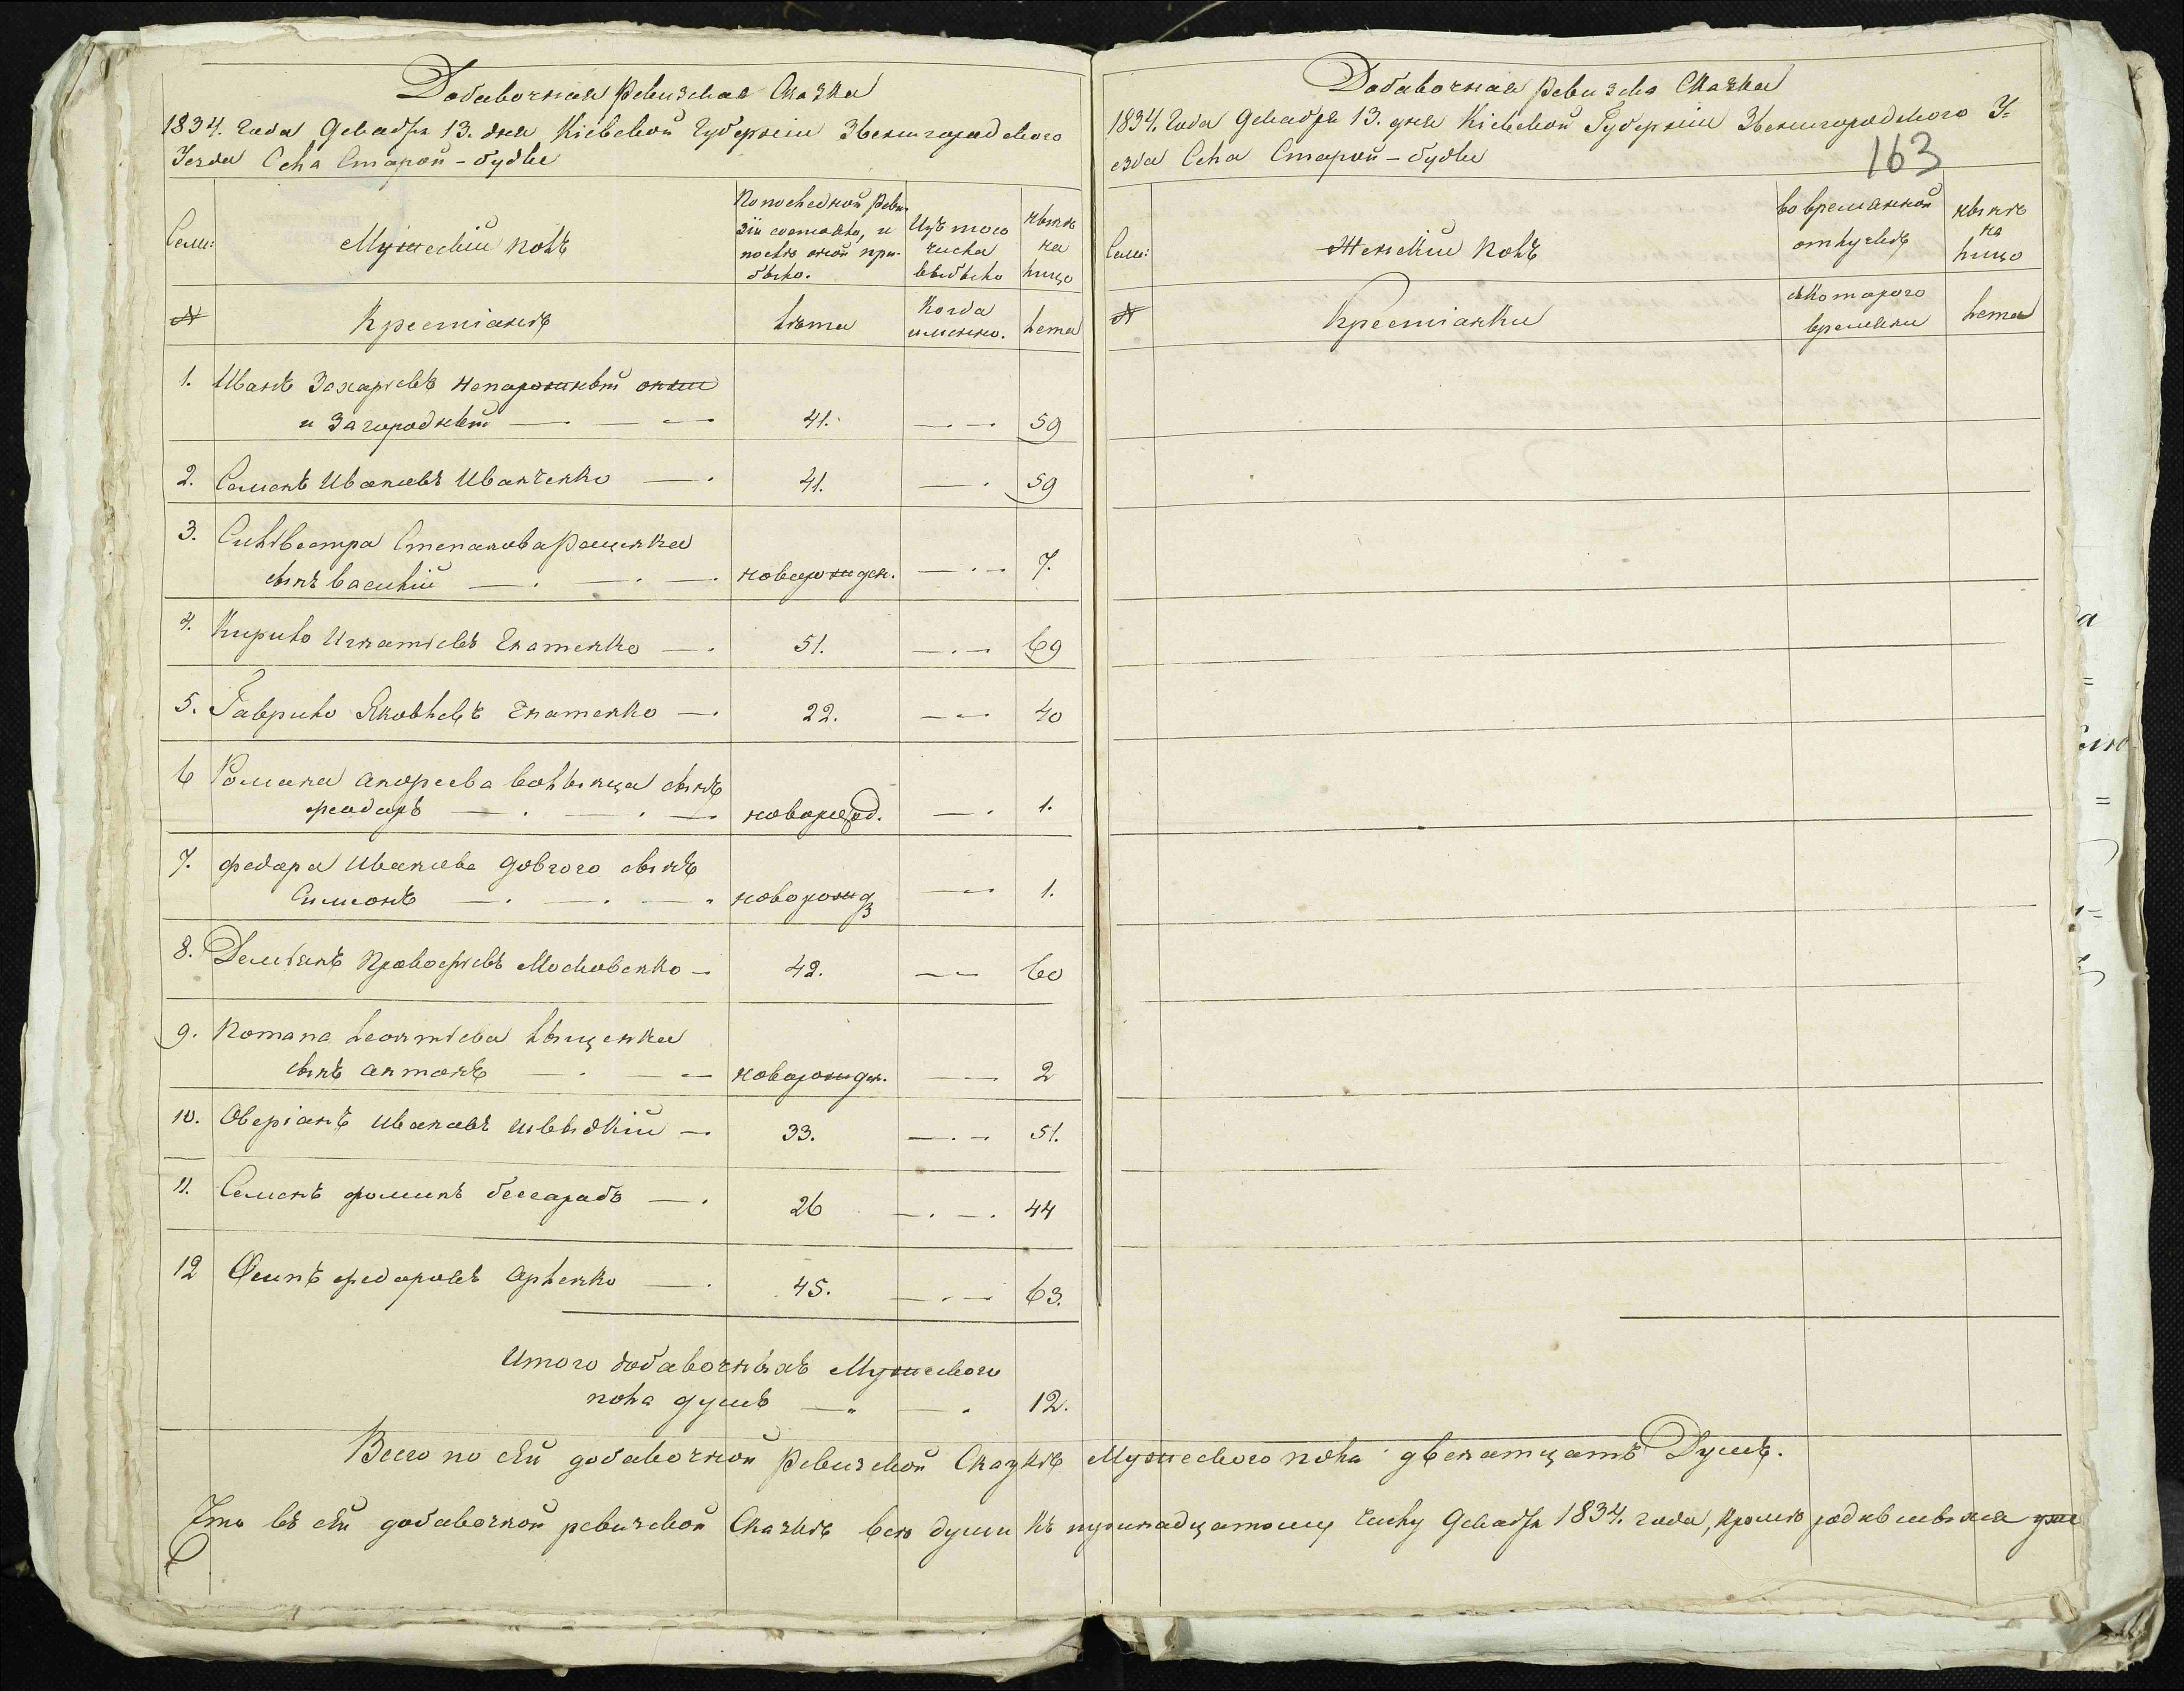 Добавочная Ревизская Сказка
1834. Года Декабря 13. дня Кіевской Губерніи Звенигородского
Уезда Села Старой-будке
Семи:
Мужескій полъ
По последной Реви-
зіи состояло, и
послѣ оной при-
было.
Изъ того
числа
выбыло
нынѣ
на
лицо
№
Крестіанѣ
Лѣта
Когда
имянно.
Лета
1. Иванъ Захаріевъ Непорожный онже
и Загородный — 41. — 59
2. Семенъ Ивановъ Иванченко — 41. — 59
3. Сильвестра Степанова
сынъ Василій — новорожден. — 7.
4. Кирило Игнатіевъ Гнатенко — 51. — 69
5. Гаврило Яковлевъ Гнатенко — 22. — 40
6 Романа Андреева Волынца сынъ
Феодоръ — новорожд. — 1.
7. Федора Иванова Довгого сынъ
Симионъ — новорожд — 1.
8. Демьянъ Прокофіевъ Московенко — 42. — 60
9. Потапа Леонтіева Лященка
сынъ Антонъ — новорожден. — 2
10. Оверіанъ Ивановъ Швыдкій — 33. — 51.
11. Семенъ Фоминъ Бессарабъ — 26 — 44
12 Осипъ Федоровъ Орленко — 45. — 63.
Итого добавочныхъ Мужеского
пола душъ — 12.
Добавочная Ревизска Сказка
1834. Года Декабря 13. дня Кіевской Губерніи Звенигородского У=
езда Села Старой-будке
163
Семи:
Женскій Полъ
во временной
отлучкѣ
нынѣ
на
лицо
№
Крестіанки
скоторого
времени
Лета
Всего по сей добавочной Ревизской Сказкѣ Мужеского пола двенатцать Душъ.
Что въ сей добавочной ревизской Сказкѣ всѣ души къ тринадцатому числу Декабря 1834. года, кромѣ родившыхся уже